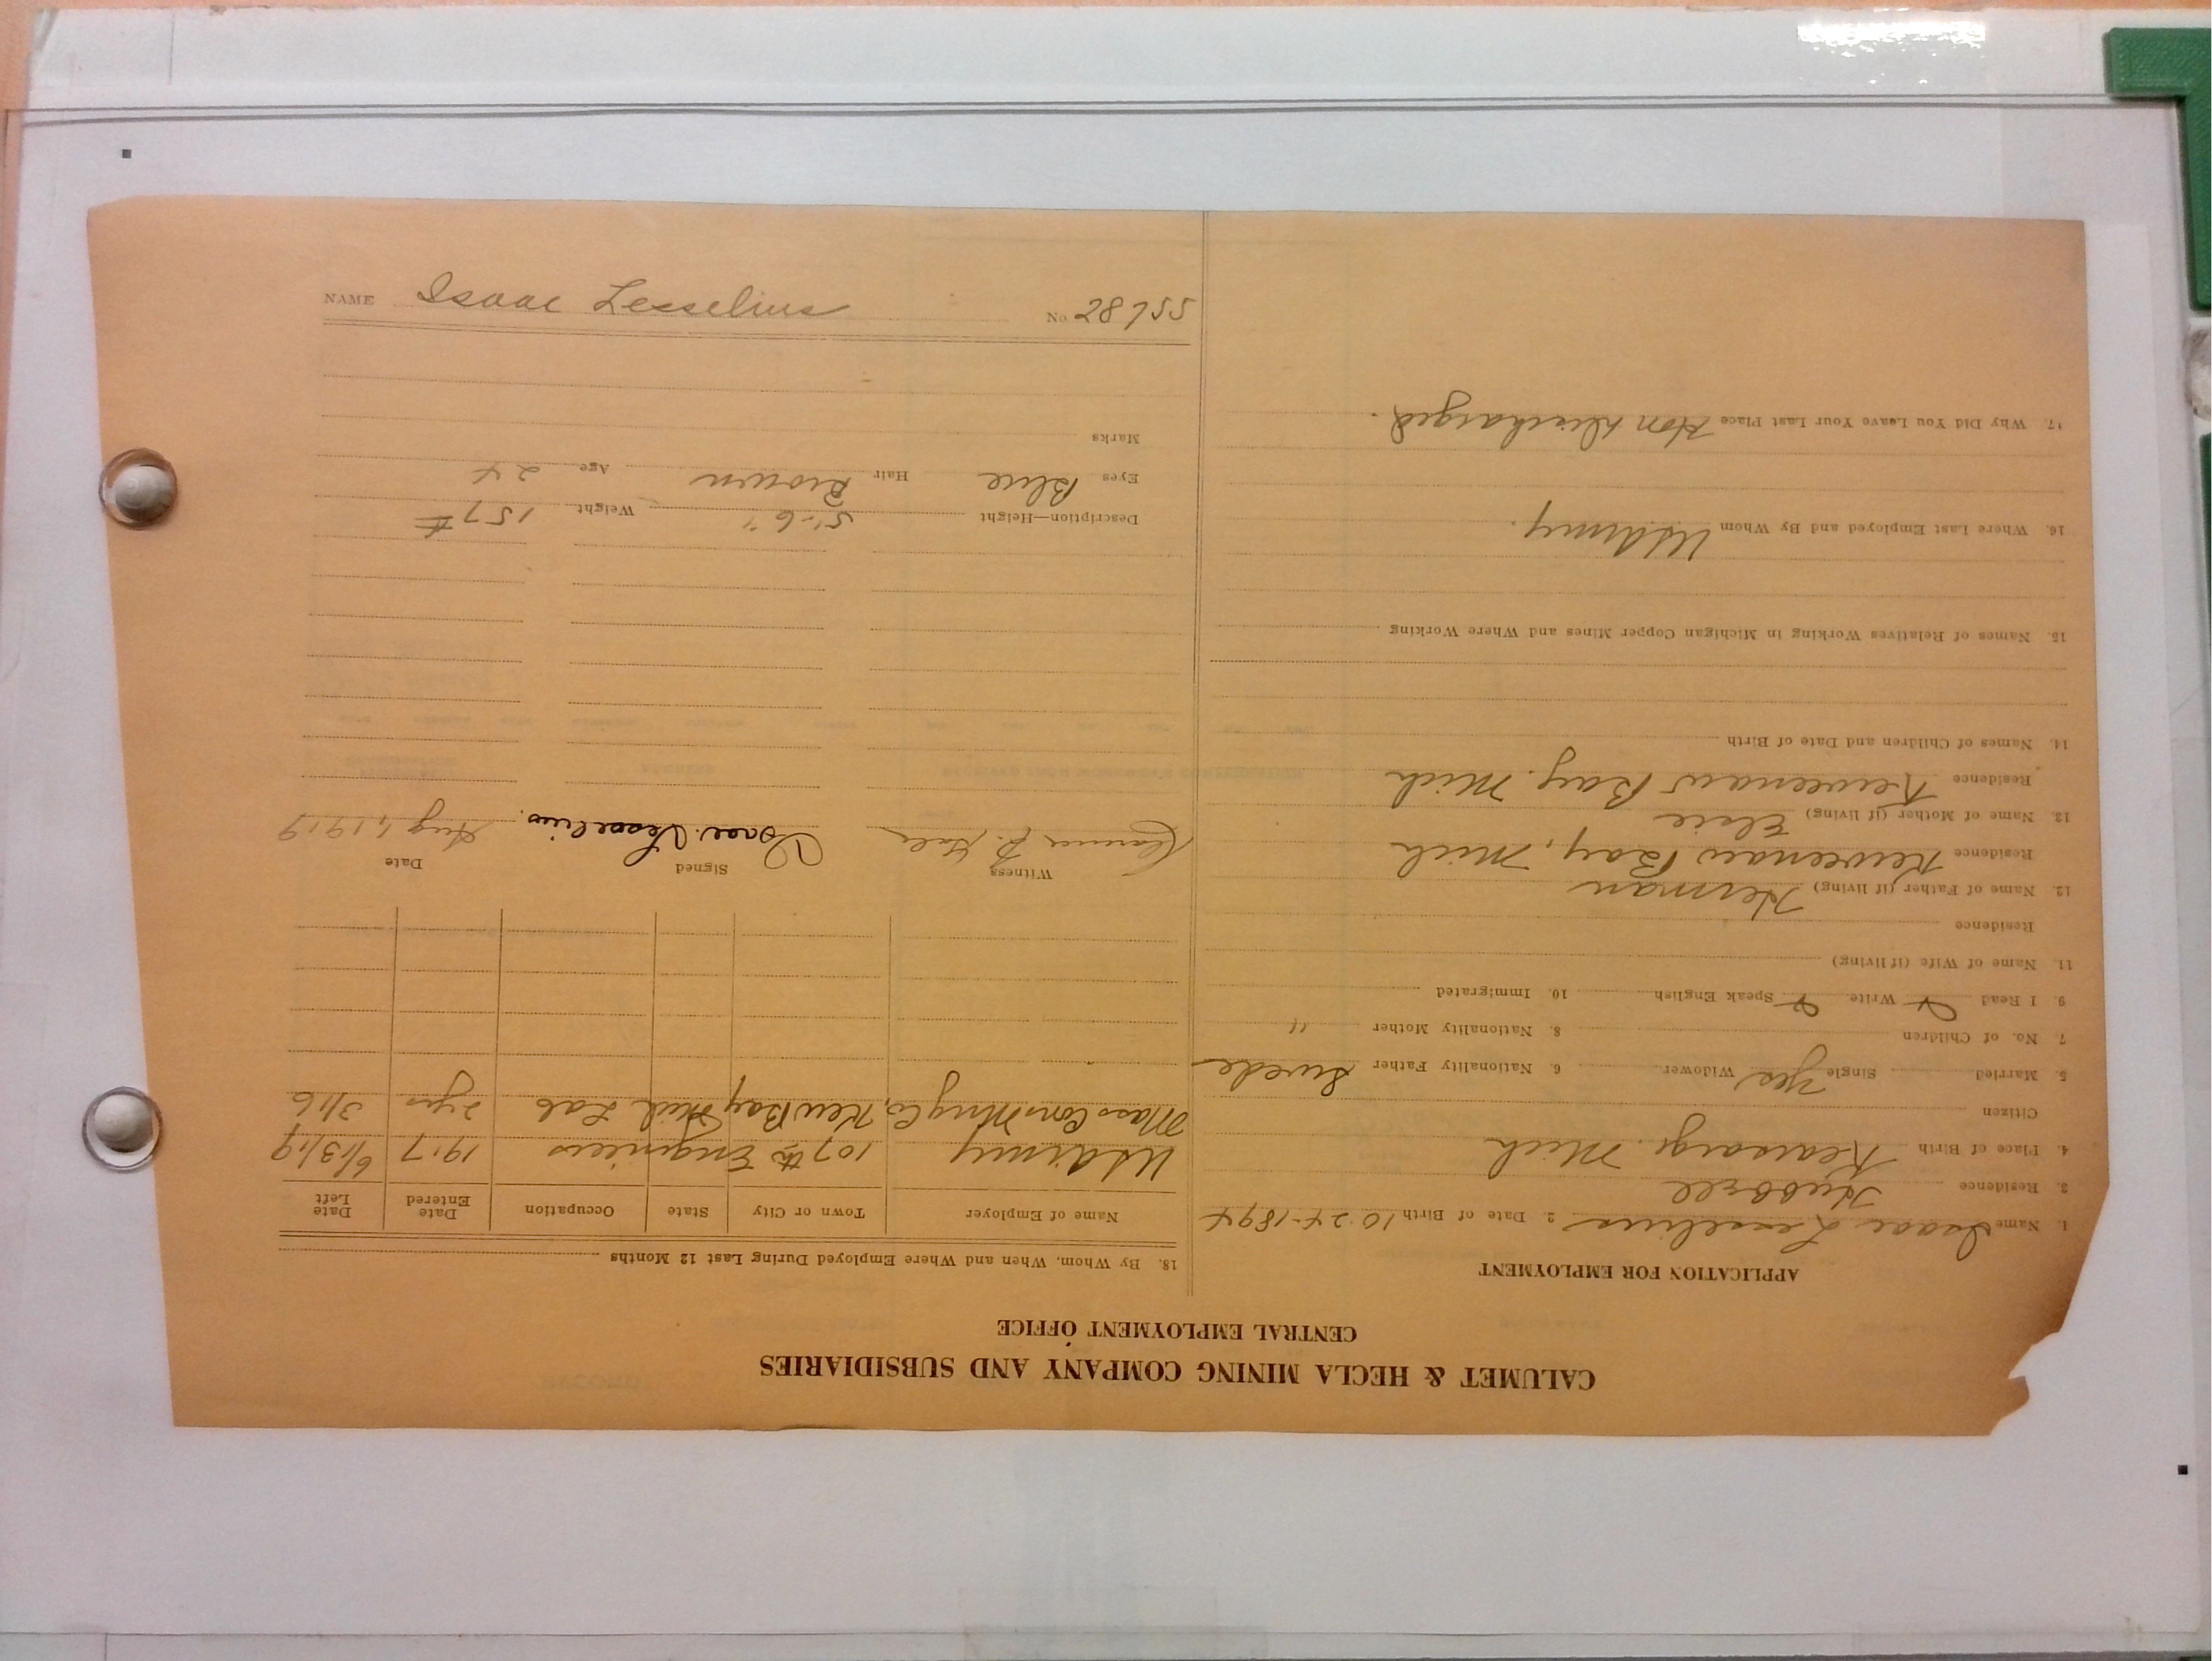 CALUMET & HECLA MINING COMPANY AND SUBSIDIARIES
CENTRAL EMPLOYMENT OFFICE
APPLICATION FOR EMPLOYMENT
1. Name Isaac Lesselius 2. Date of Birth 10-24-1894
3. Residence Hubbell
4. Place of Birth Kearsarge Mich
Citizen
5. Married Single Yes Widower 6. Nationality Father Swede
7. No. of Children 8. Nationality Mother "
9. I Read Write Speak English 10. Immigrated
11. Name of Wife (if living)
Residence
12. Name of Father (if living) Herman
Residence Keweenaw Bay, Mich
13. Name of Mother (if living) Elsie
Residence Keweenaw Bay. Mich
14. Names of Children and Date of Birth
15. Names of Relatives Working in Michigan Copper Mines and Where Working
16. Where Last Employed and By Whom US Army.
17. Why Did You Leave Your Last Place Hon discharged.
18. By Whom, When and Where Employed During Last 12 Months
Name of Employer Town or City State Occupation Date Entered Date Left
US Army 107th Engineers 1917 6/13/19
Mass Cons Mng Co, Kew Bay Mich Lab 2 yrs 3/16
Witness Signed Date
Isaac Lesselius. Aug 1, 1919
Description—Height 5'-6" Weight 157 #
Eyes Blue Hair Brown Age 24
Marks
NAME Isaac Lesselius No. 28755